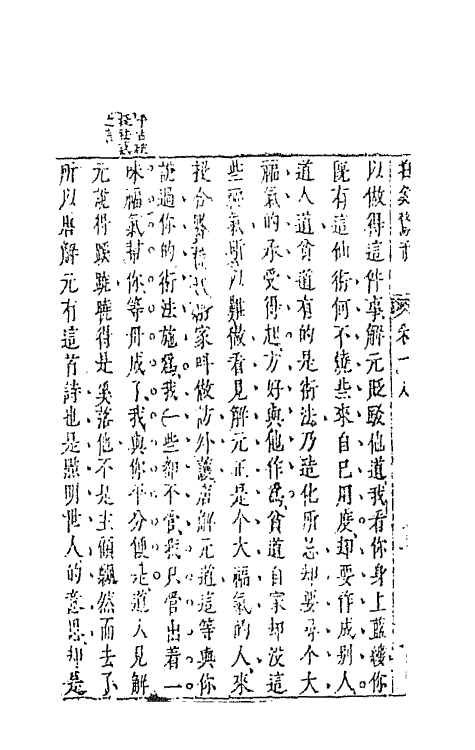 拍案驚奇 卷十八
以做得這件事解元貶駁他道我看你身上藍縷你
既有這仙術何不燒些來自己用度却要作成別人
道人道貧道有的是術法乃造化所忌却要尋个大
福氣的承受得起方好與他作爲貧道自家却沒這
些福氣所以難做看見解元正是个大福氣的人來
投合夥我們術家叫做訪外護唐解元道這等與你
說過你的術法施爲我一些都不管我只管出着一
味福氣幫你等丹成了我與你平分便是道人見解
元說得蹊蹺曉得是奚落他不是主顧飄然而去了
所以唐解元有這首詩也是點明世人的意思却是